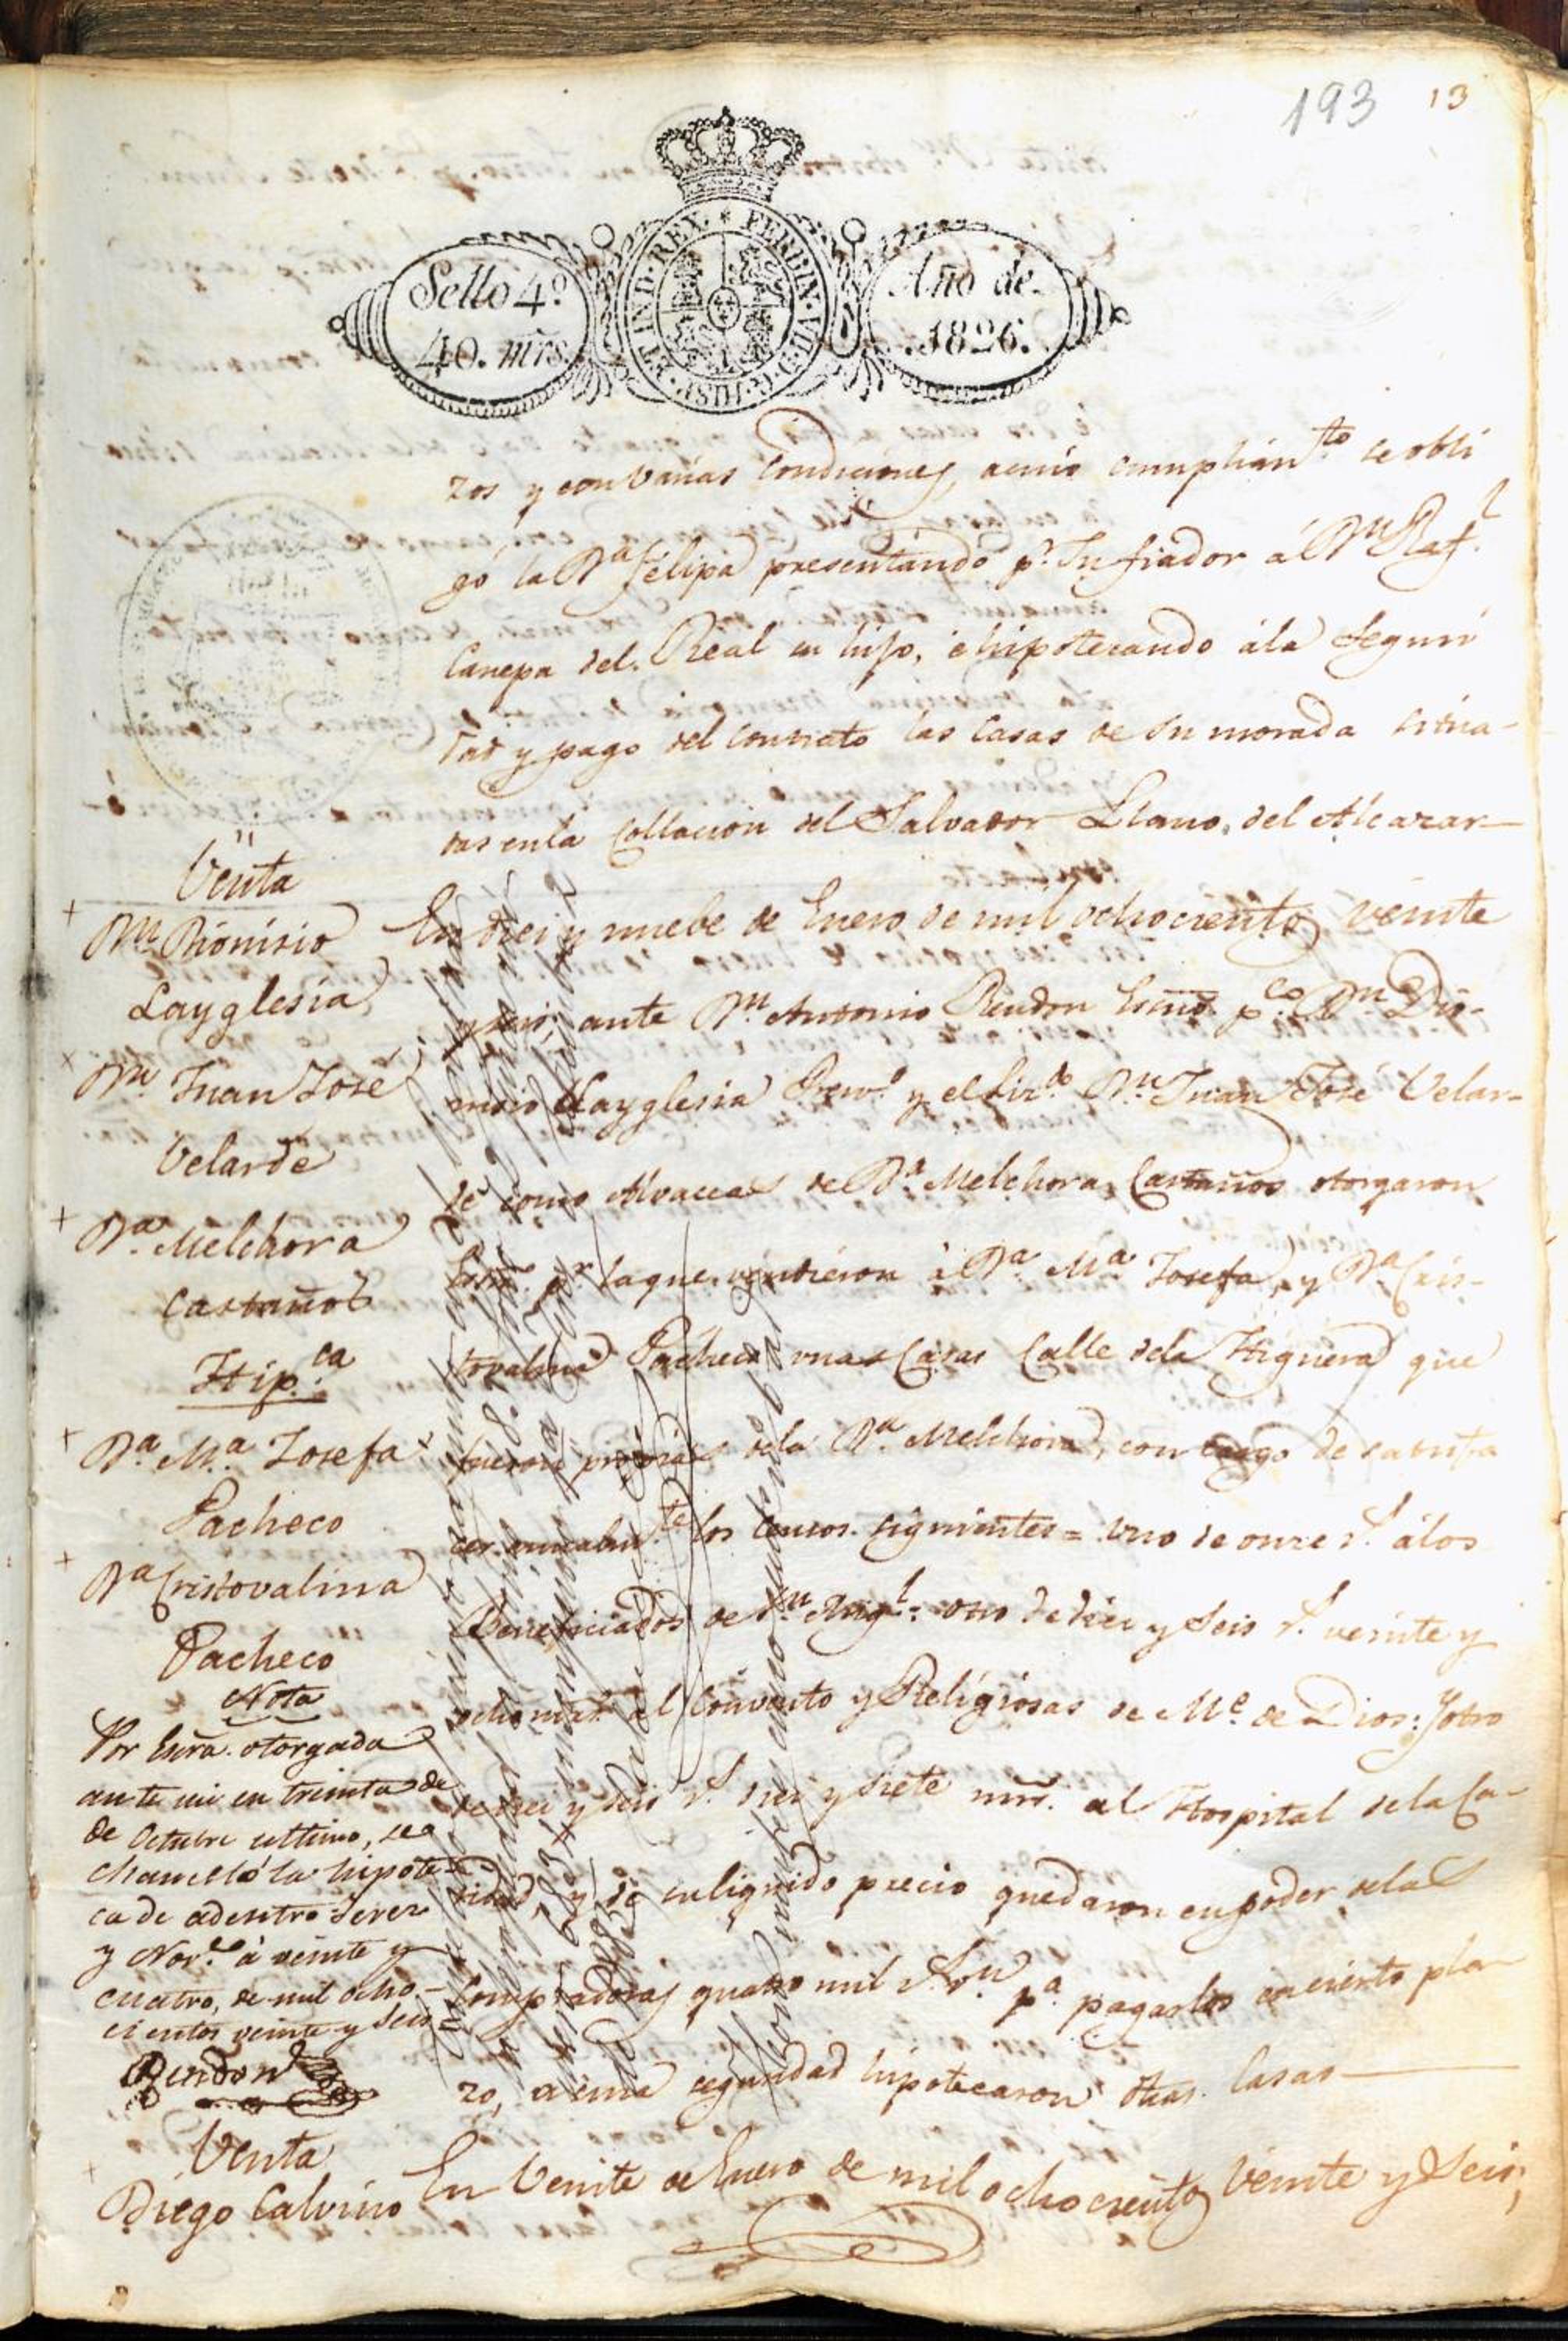 193 13
Sello 4º
40. mrs.
FERDIN. VII. D. G. HISP. ET IND. REX.
Año de
1826.
zos y con varias condiciones, acuio cumplimto se obli
gó la Da Felipa presentando pr. su fiador á Dn Rafl
Canepa del Real su hijo, é hipotecando ála seguri
dad y pago del contrato las Casas de su morada situa-
das enla collacion del Salvador Llano del Alcazar
Venta
Dn Dionisio
Layglesia
Dn Juan José
Velarde
Da Melchora
Castaños
Hip.ca
Da Ma Josefa
Pacheco
Da Cristovalina
Pacheco
En diez y nuebe de Enero de mil ochocientos veinte
y seis, ante Dn Antonio Rendon Esno pco Dn Dio-
nisio Layglesia Presvo y el Lizdo Dn Juan José Velar-
de como Alvaceas de Da Melchora Castaños otorgaron
Esra pr laque vendieron á Da Ma Josefa, y Da Cris-
tovalina Pacheco unas Casas Calle dela Higuera que
fueron propias dela Da Melchora, con cargo de satisfa
cer anualmte los censos siguientes = Uno de once rs. álos
Beneficiados de Sn Migl: otro de diez y seis rs. veinte y
ocho mrs al Convento y Religiosas de Me de Dios: Yotro
de diez y seis rs. diez y siete mrs. al Hospital dela Ca-
ridad, y de su liquido precio quedaron en poder delas
Compradoras quatro mil rs. vn pa. pagarlos en cierto pla
zo, a cuia seguridad hipotecaron dhas. Casas
Nota
Por Esra. otorgada
ante mi en treinta de
de Octubre ultimo, se
chanceló la hipote
ca de adentro Jerez
y Nove á veinte y
cuatro, de mil ocho-
cientos veinte y seis=
Rendon
Venta
Diego Calvino
En Veinte de Enero de mil ochocientos Veinte y Seis,